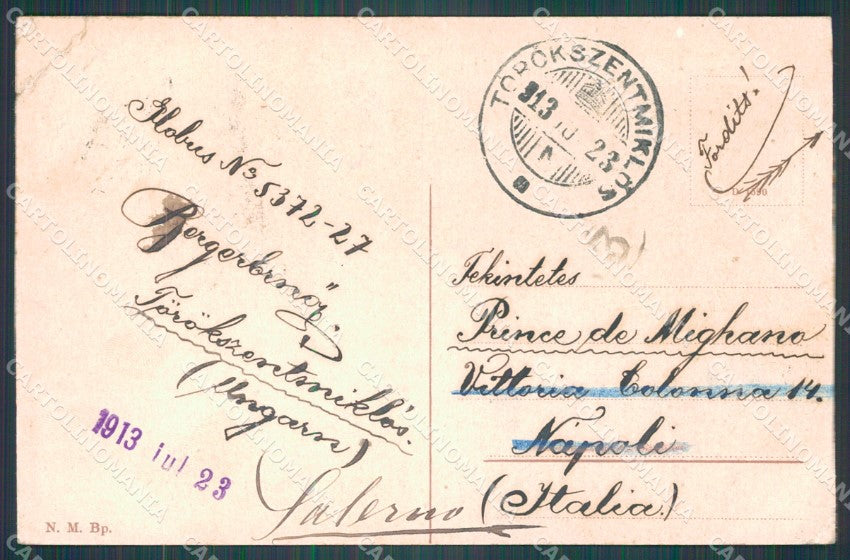 Globus No 5372-27
Bergerbrnöz
Törökszentmiklós.
(Ungarn)
1913 jul 23
N. M. Bp.
TÖRÖKSZENTMIKLÓS
913 JUL 23
Fordíts!
D 1390
Tekintetes
Prince de Mighano
Vittoria Colonna 14.
Nápoli
Salerno (Italia.)
CARTOLINOMANIA